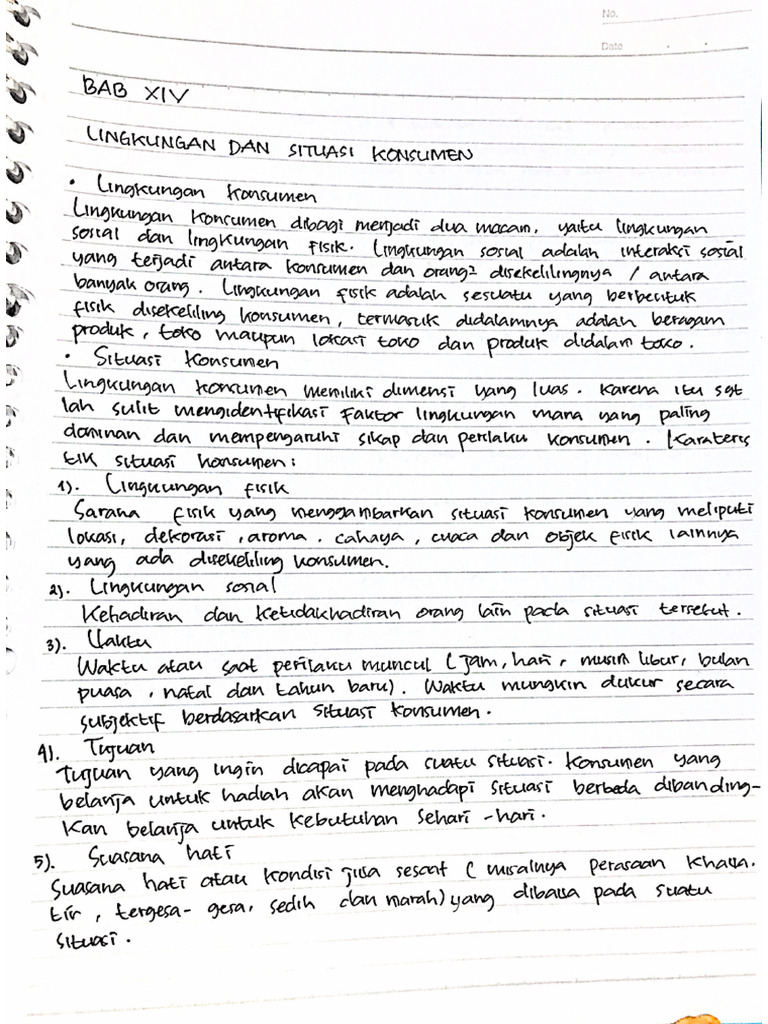 No.
Date
BAB XIV
LINGKUNGAN DAN SITUASI KONSUMEN
• Lingkungan Konsumen
Lingkungan Konsumen dibagi menjadi dua macam, yaitu lingkungan
sosial dan lingkungan fisik. Lingkungan sosial adalah interaksi sosial
yang terjadi antara konsumen dan orang² disekelilingnya / antara
banyak orang. Lingkungan fisik adalah sesuatu yang berbentuk
fisik disekeliling konsumen, termasuk didalamnya adalah beragam
produk, toko maupun lokasi toko dan produk didalam toko.
• Situasi Konsumen
Lingkungan konsumen memiliki dimensi yang luas. Karena itu sgt
lah sulit mengidentifikasi faktor lingkungan mana yang paling
dominan dan mempengaruhi sikap dan perilaku konsumen. Karateris
tik situasi konsumen:
1). Lingkungan fisik
Sarana fisik yang menggambarkan situasi konsumen yang meliputi
lokasi, dekorasi, aroma, cahaya, cuaca dan objek fisik lainnya
yang ada disekeliling konsumen.
2). Lingkungan sosial
Kehadiran dan ketidakhadiran orang lain pada situasi tersebut.
3). Waktu
Waktu atau saat perilaku muncul (jam, hari, musim libur, bulan
puasa, natal dan tahun baru). Waktu mungkin diukur secara
subjektif berdasarkan situasi konsumen.
4). Tujuan
Tujuan yang ingin dicapai pada suatu situasi. Konsumen yang
belanja untuk hadiah akan menghadapi situasi berbeda dibanding-
kan belanja untuk kebutuhan sehari-hari.
5). Suasana hati
Suasana hati atau kondisi jiwa sesaat (misalnya perasaan khawa.
tir, tergesa-gesa, sedih dan marah) yang dibawa pada suatu
situasi.